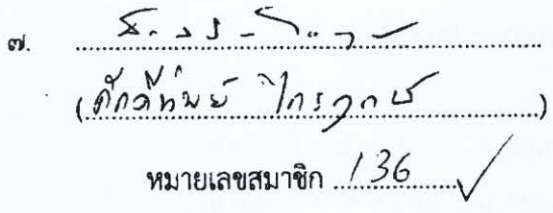 ๗.
(ศักดิ์ทิพย์ ไกรฤกษ์)
หมายเลขสมาชิก 136 ✓